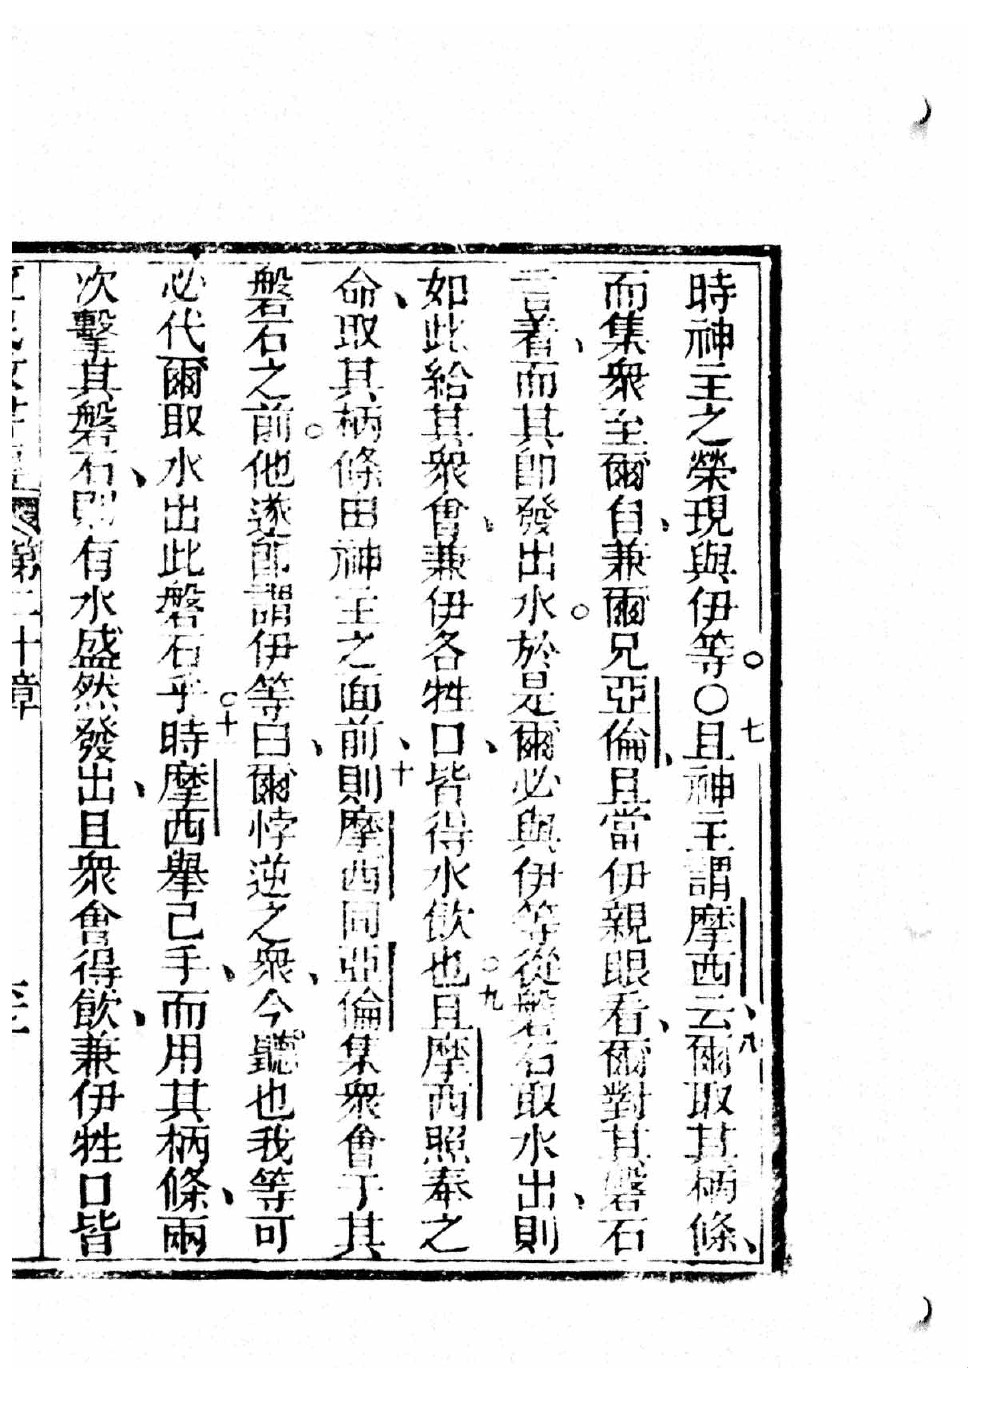 時神主之榮現與伊等○且神主謂摩西云爾取其柄條
而集衆至爾自兼爾兄亞倫且當伊親眼看爾對其磐石
言着而其即發出水於是爾必與伊等從磐石取水出則
如此給其衆會兼伊各牲口皆得水飲也且摩西照奉之
命取其柄條由神主之面前則摩西同亞倫集衆會于其
磐石之前他遂即謂伊等曰爾悖逆之衆今聽也我等可
必代爾取水出此磐石乎時摩西舉己手而用其柄條兩
次擊其磐石則有水盛然發出且衆會得飲兼伊牲口皆
第二十章